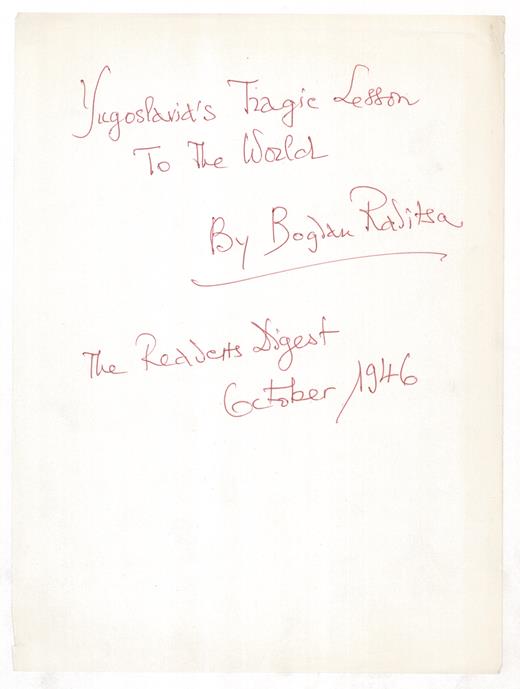 Yugoslavia's Tragic Lesson
To The World
By Bogdan Raditsa
The Readers Digest
October 1946